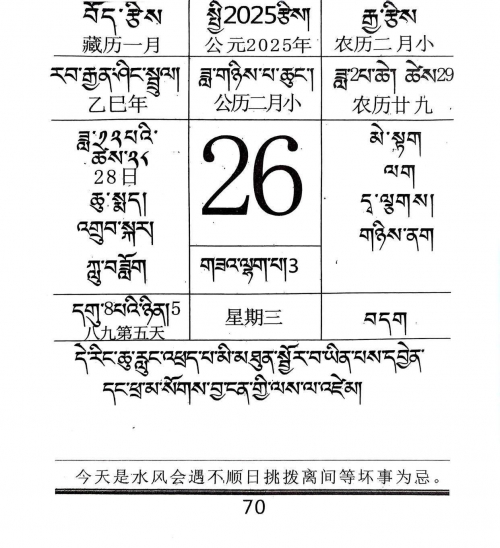 བོད་རྩིས
སྤྱི2025རྩིས།
རྒྱ་རྩིས
藏历一月
公元2025年
农历二月小
རབ་རྒྱན་ཤིང་སྦྲུལ།
ཟླ་གཉིས་པ་ཆུང་།
ཟླ་2པ་ཆེ། ཚེས29
乙巳年
公历二月小
农历廿九
ཟླ་༡༢པའི་
ཚེས་༢༨
28日
ཆུ་སྨད།
འགྲུབ་སྐར།
ཀླུ་བཟློག
26
མེ་སྟག
ལག
དྭ་ལྕུགས།
གཉིས་ནག
གཟའ་ལྷག་པ།3
དགུ་8པའི་ཉིན།5
八九第五天
星期三
བདག
དེ་རིང་ཆུ་རླུང་འཕྲད་པ་མི་མཐུན་སྦྱོར་བ་ཡིན་པས་དབྱེན་
དང་ཕྲ་མ་སོགས་བྱ་ངན་གྱི་ལས་ལ་འཛེམ།
今天是水风会遇不顺日挑拨离间等坏事为忌。
70